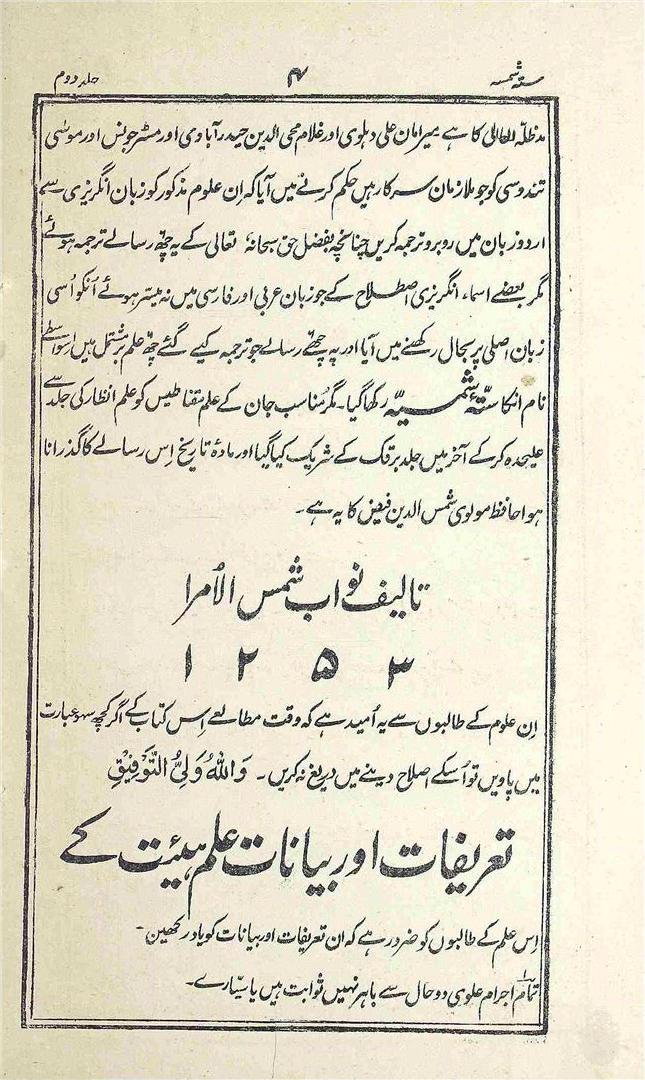 ستہ شمسیہ ۴ جلد دوم
مدظلہ العالی کا ہے میر امان علی دہلوی اور غلام محی الدین حیدرآبادی اور مسٹر جونس اور موسی
تندوسی کو جو ملازمان سرکار ہیں حکم کرنے میں آیا کہ اِن علوم مذکور کو زبان انگریزی سے
اردو زبان میں روبرو ترجمہ کریں چنانچہ بفضل حق سبحانہ تعالی کے یہ چھ رسالے ترجمہ ہوئے
مگر بعضے اسماء انگریزی اصطلاح کے جو زبان عربی اور فارسی میں نہ میسر ہوئے اُنکو اُسی
زبان اصلی پر بحال رکھنے میں آیا اور یہ چھے رسالے جو ترجمہ کیے گئے چھ علم پر مشتمل ہیں اِسواسطے
نام انکا ستۂ شمسیہ رکھا گیا۔ مگر مُناسب جان کے علم مقناطیس کو علم انظار کی جلد سے
علیحدہ کر کے آخر میں جلد برقک کے شریک کیا گیا اور مادۂ تاریخ اِس رسالے کا گذرانا
ہوا حافظ مولوی شمس الدین فیض کا یہ ہے۔
تالیف نواب شمس الاُمرا
۱ ۲ ۵ ۳
اِن علوم کے طالبوں سے یہ اُمید ہے کہ وقت مطالعے اِس کتاب کے اگر کچھ سہو عبارت
میں پاویں تو اُسکے اصلاح دینے میں دریغ نہ کریں۔ وَاللّٰہُ وَلِیُّ التَّوْفِیْقِ
تعریفات اور بیانات علم ہیئت کے
اِس علم کے طالبوں کو ضرور ہے کہ ان تعریفات اور بیانات کو یاد رکھیں۔
تمام اجرام علوی دو حال سے باہر نہیں ثوابت ہیں یا سیّارے۔